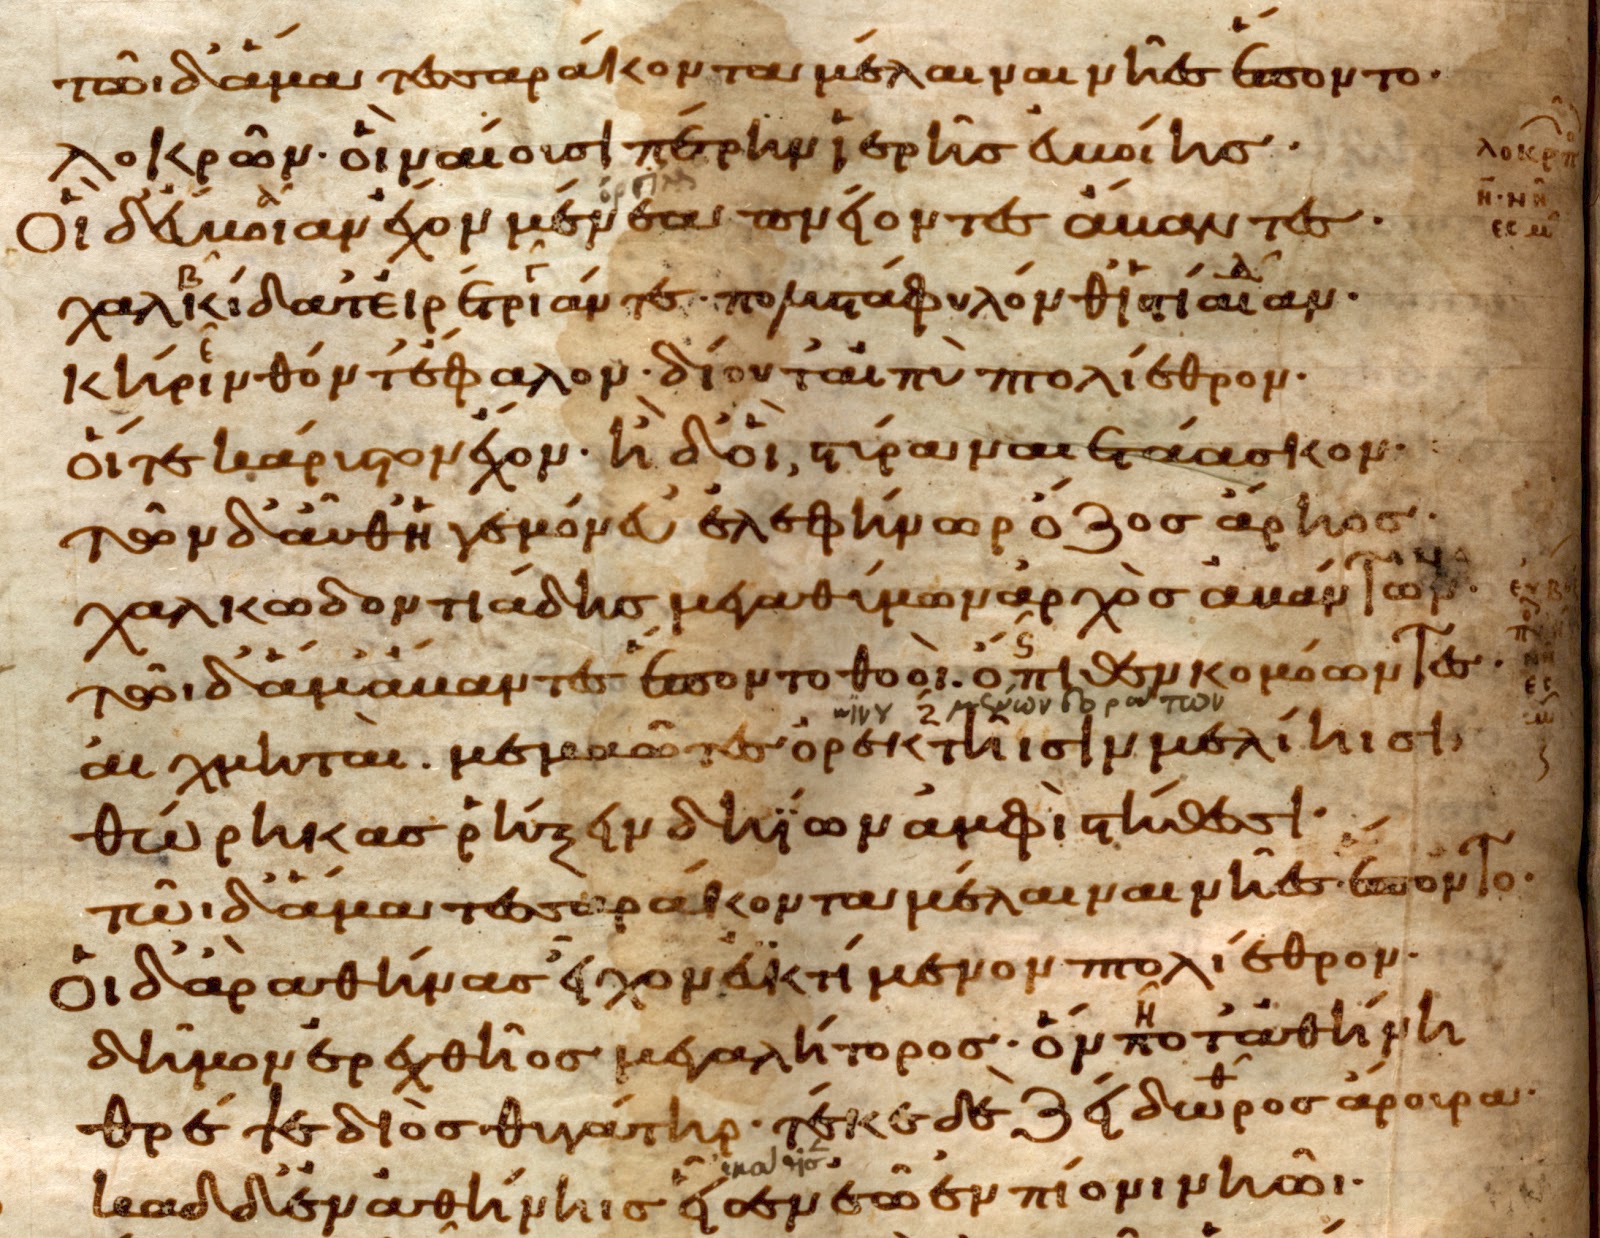 τῶι δ' ἅμα τεσσαράκοντα μέλαιναι νῆες ἕποντο·
λοκρῶν· οἳ ναίουσι πέρην ἱερῆς εὐβοίης·
Οἳ δ' εὔβοιαν ἔχον μένεα πνείοντες ἄβαντες·
χαλκίδα τ' εἰρέτριάν τε· πολυστάφυλόν θ' ἱστίαιαν·
κήρινθόν τ' ἔφαλον· δίου τ' αἰπὺ πτολίεθρον·
οἵ τε κάρυστον ἔχον· ἠδ' οἳ στύρα ναιετάασκον·
τῶν δ' αὖθ' ἡγεμόνευ' ἐλεφήνωρ ὄζος ἄρηος·
χαλκωδοντιάδης μεγαθύμων ἀρχὸς ἀβάντων·
τῶι δ' ἅμ' ἄβαντες ἕποντο θοοὶ· ὄπιθεν κομόωντες·
αἰχμηταὶ· μεμαῶτες ὀρεκτῆισιν μελίηισι
θώρηκας ῥήξειν δηΐων ἀμφὶ στήθεσι·
τῶι δ' ἅμα τεσσαράκοντα μέλαιναι νῆες ἕποντο·
Οἳ δ' ἄρ' ἀθήνας εἶχον ἐϋκτίμενον πτολίεθρον·
δῆμον ἐρεχθῆος μεγαλήτορος· ὅν ποτ' ἀθήνη
θρέψε διὸς θυγάτηρ· τέκε δὲ ζείδωρος ἄρουρα·
καδ δ' ἐν ἀθήνηις εἷσεν ἑῶ ἐν πίονι νηῶι·